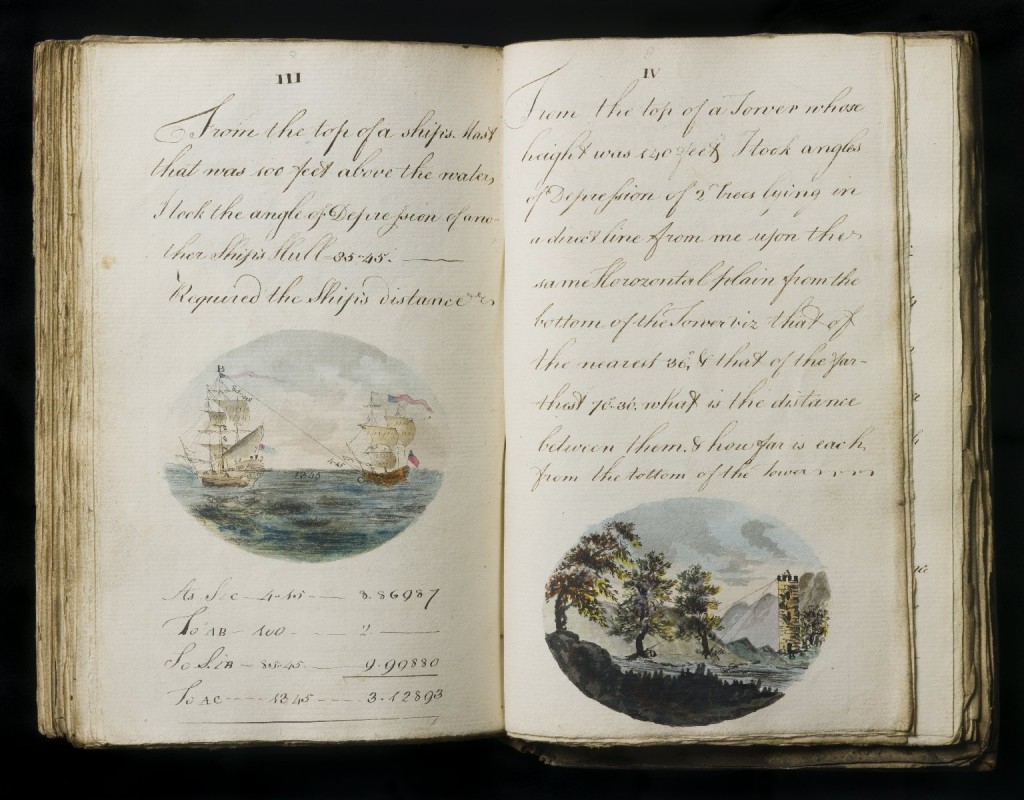 III
From the top of a ship's Mast
that was 100 feet above the water,
I took the angle of Depression of ano-
ther Ship's Hull = 85-45.
Required the Ship's distance
B
1345
As S.∠C 4-15 8.86987
To AB - 100 2
So S.∠B - 85-45 9.99880
To AC 1345 3.12893
IV
From the top of a Tower whose
height was 140 feet I took angles
of Depression of 2 Trees lying in
a direct line from me upon the
same Horozontal plain from the
bottom of the Tower viz that of
the nearest & that of the far-
thest what is the distance
between them. & how far is each
from the bottom of the tower